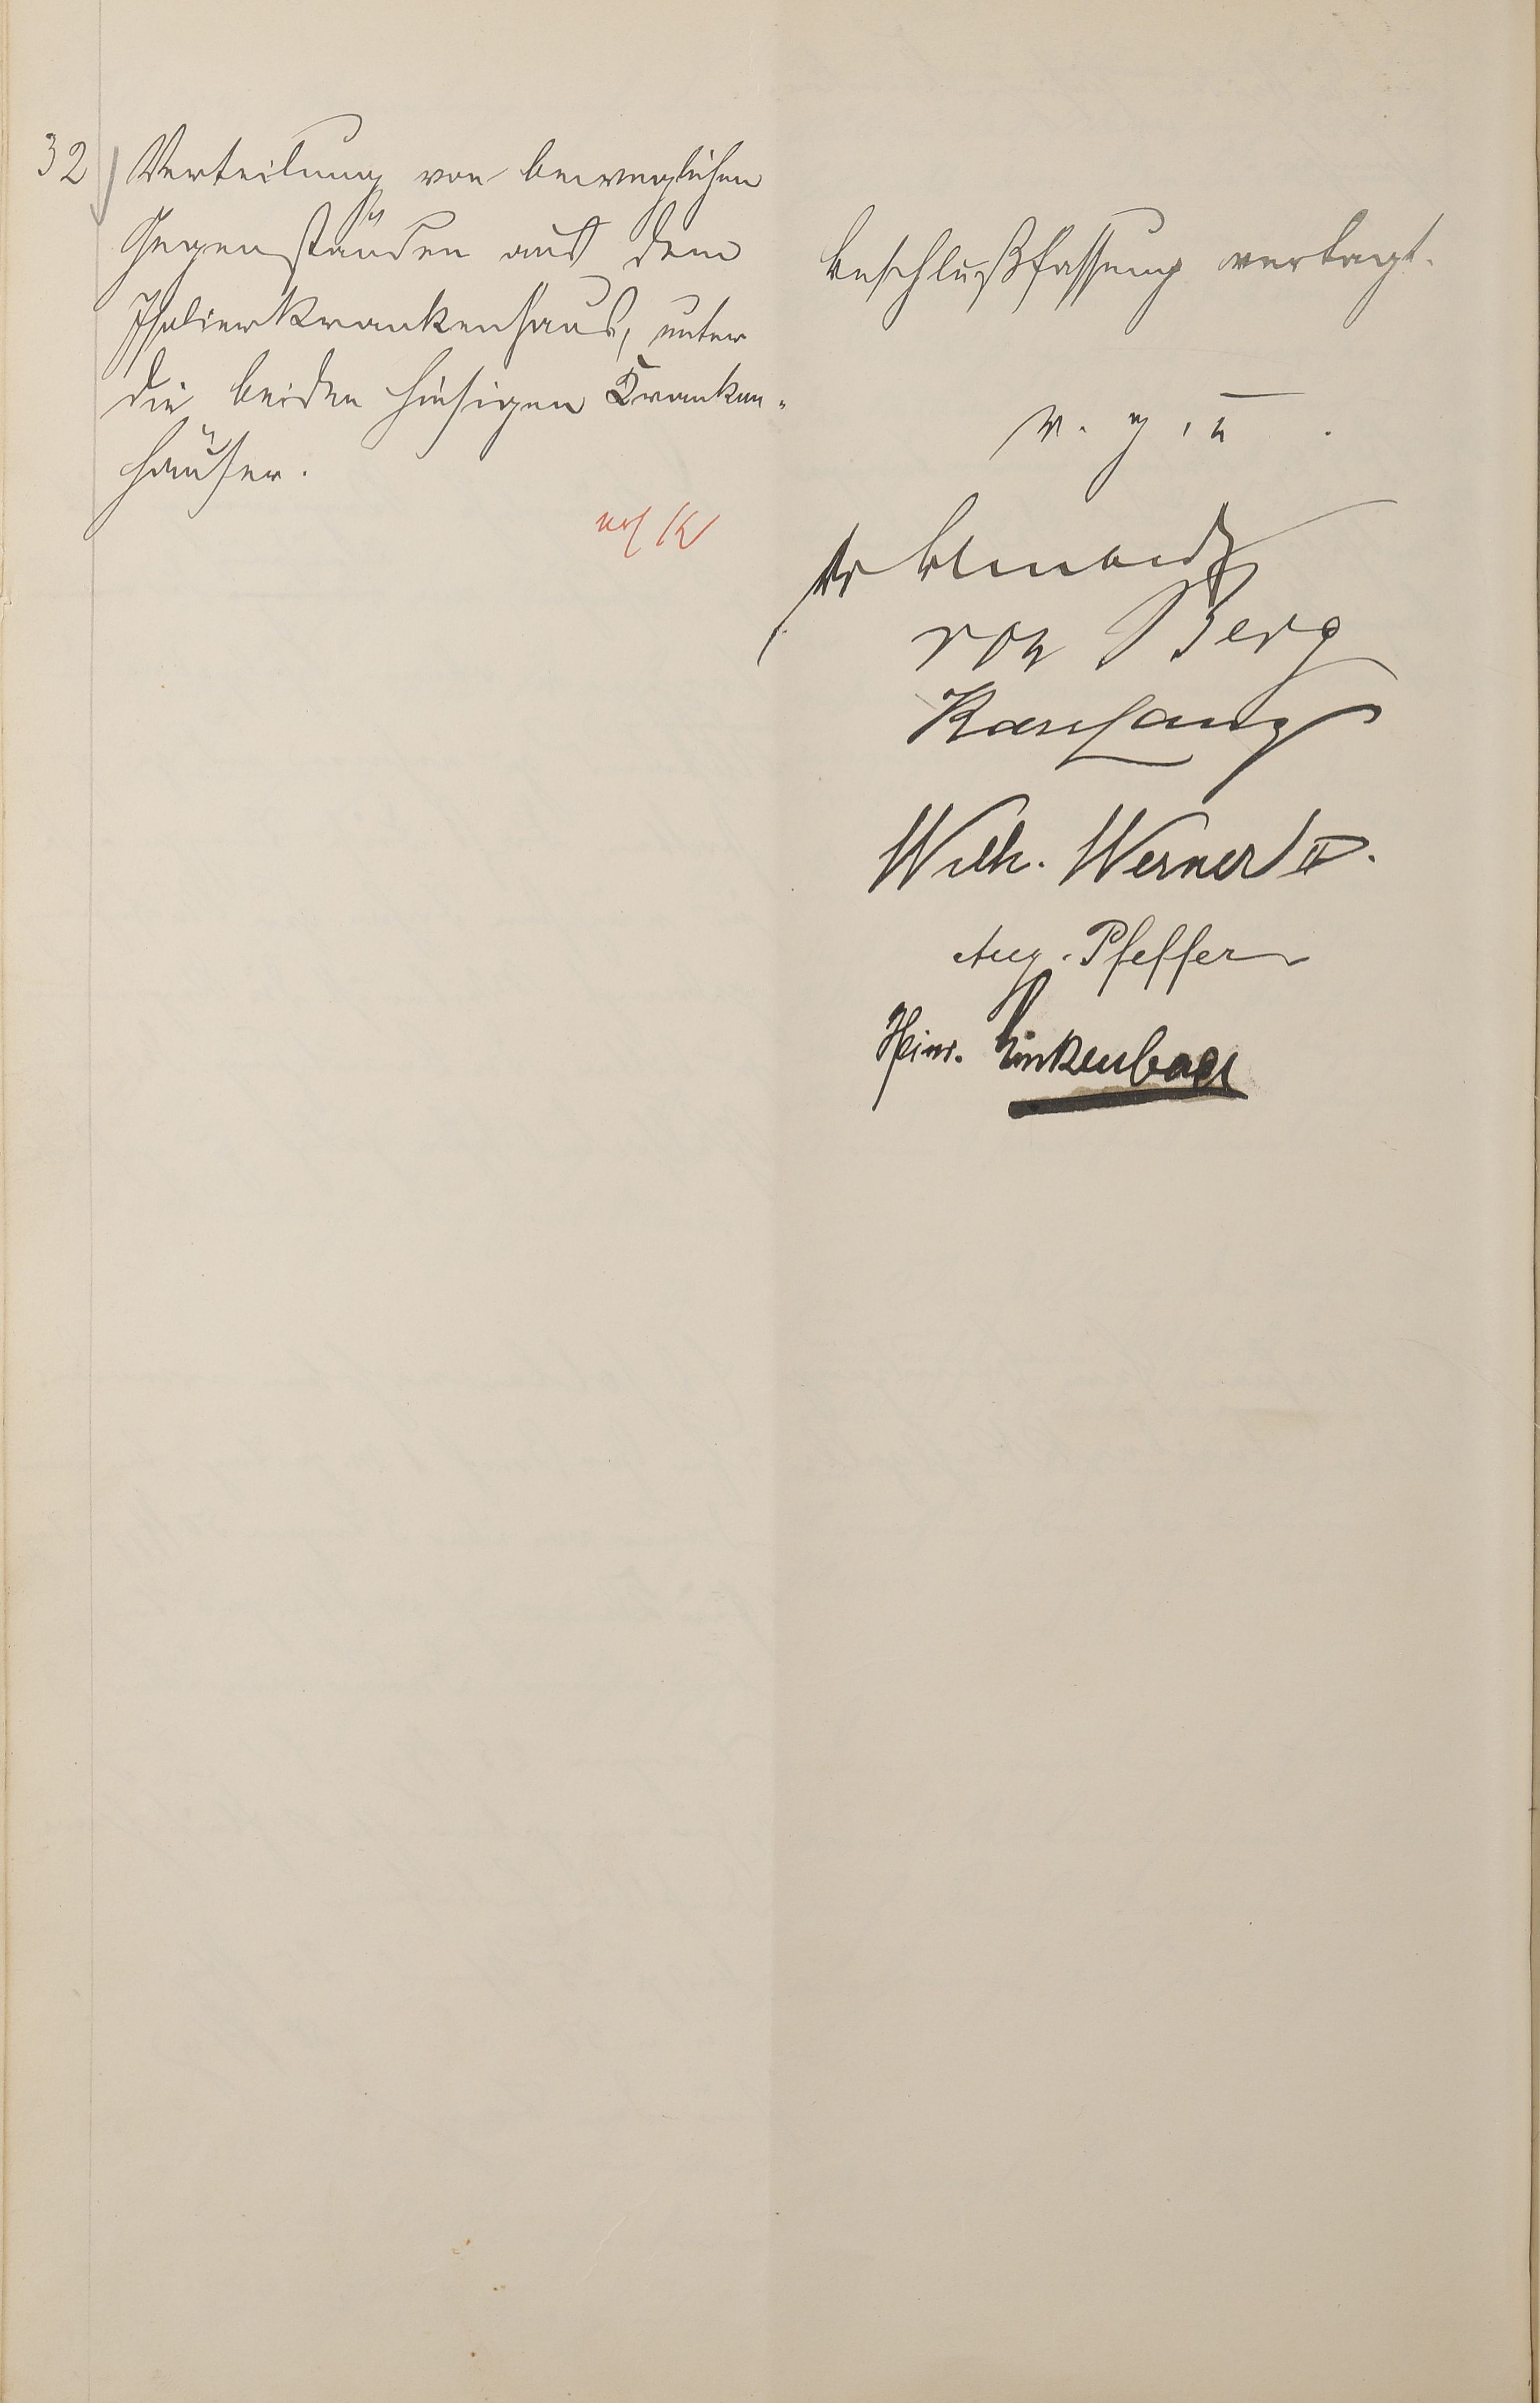 32) Verteilung von beweglichen
Gegenständen aus dem
Isolierkrankenhaus, unter
die beiden hiesigen Kranken-
häuser.
Beschlußfassung vertagt.
v. g. u.
von Berg
Karl Lang
Wilh. Werner II.
Aug. Pfeffer
Heinr. Linkenbach